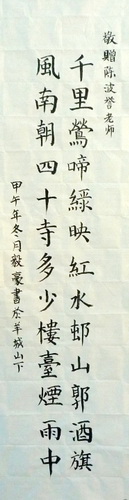 敬贈陈波誉老师
千里鶯啼綠映紅水邨山郭酒旗
風南朝四十寺多少樓臺煙雨中
甲午年冬月毅豪書於羊城山下